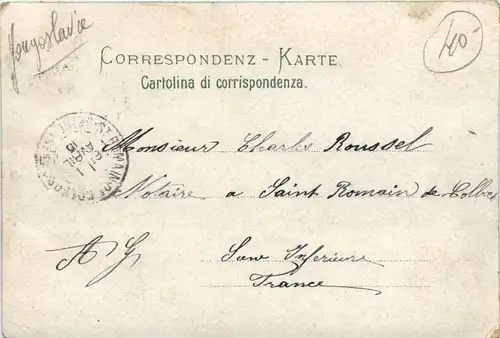 Jougoslavie
40.-
CORRESPONDENZ - KARTE.
Cartolina di corrispondenza.
Monsieur Charles Roussel
Notaire a Saint Romain de Colbos
A G
Seine Inferieure
France